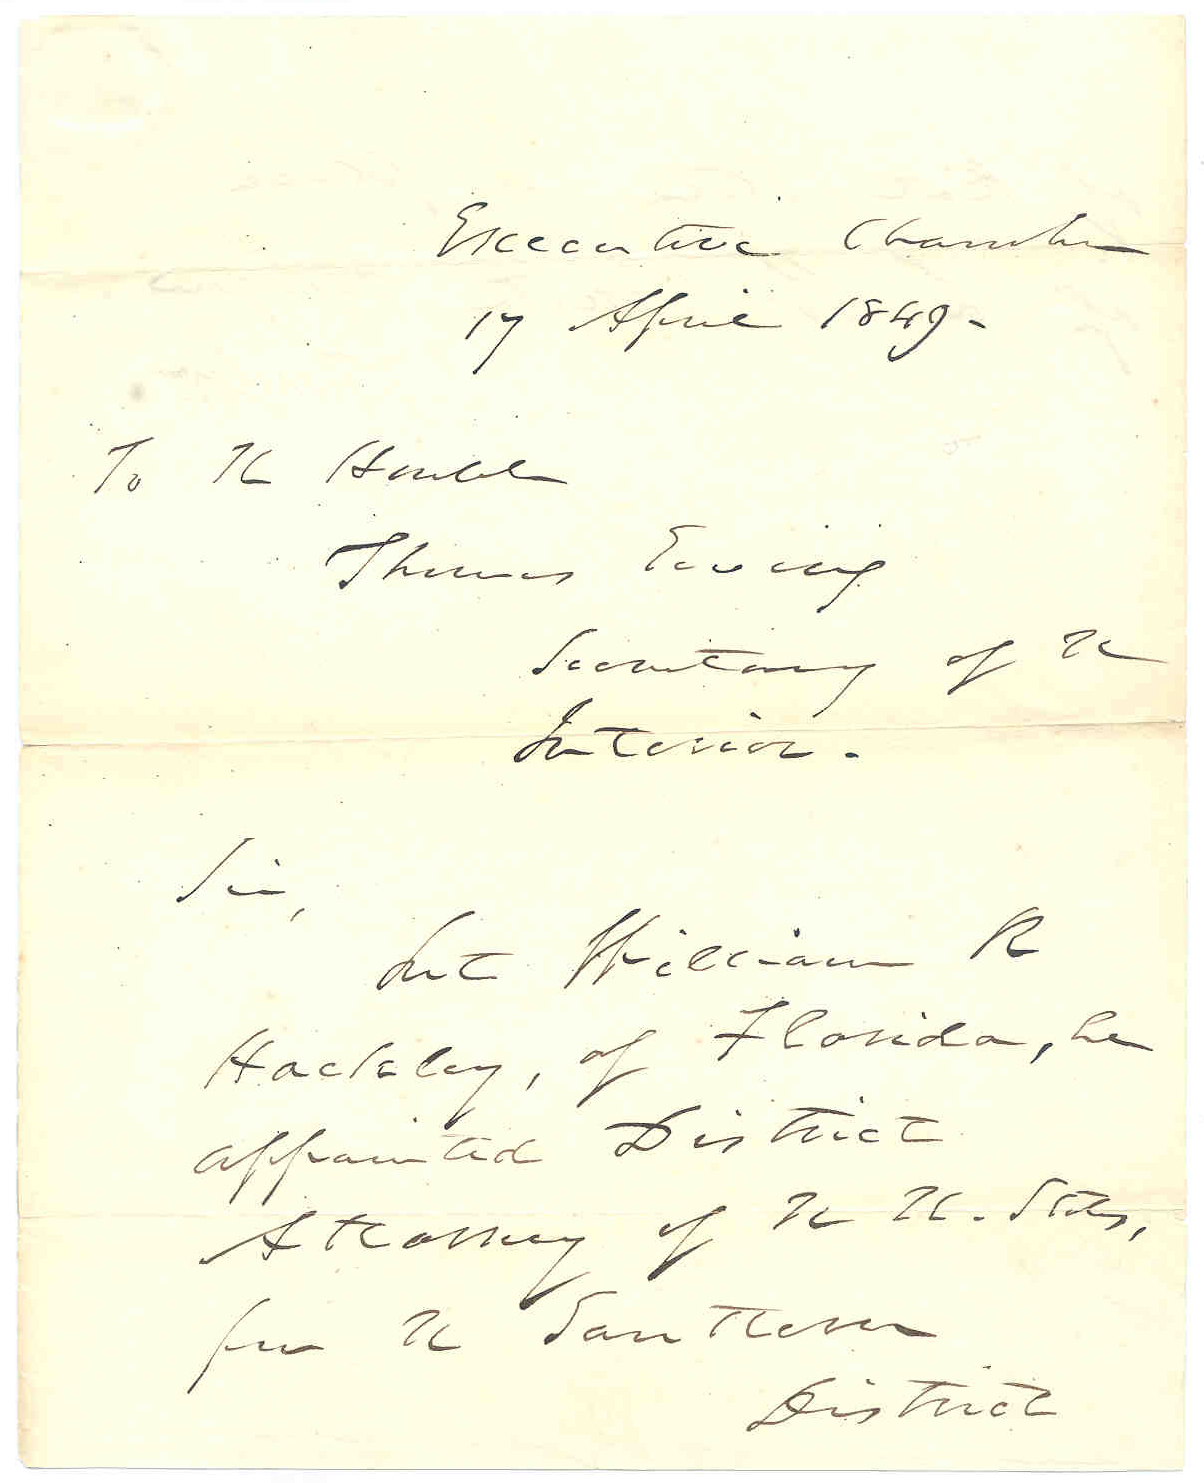 Executive Chamber
17 April 1849.
To the Honble
Thomas Ewing
Secretary of the
Interior.
Sir,
Let William R
Hackley, of Florida, be
appointed District
Attorney of the U. States,
for the Southern
District